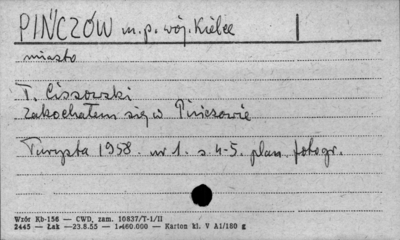 PIŃCZÓW m.p. wój. Kielce
miasto
T. Cissowski
Zakochałem się w Pińczowie
Turysta 1958. nr 1. s 4-5. plan, fotogr.
Wzór Kb-156 — CWD, zam. 10837/T-1/II
2445 — Łak —23.8.55 — 1.460.000 — Karton kl. V A1/180 g